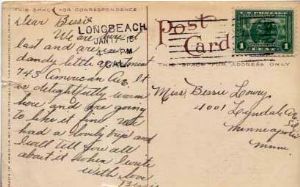 THIS SPACE FOR CORRESPONDENCE
Post Card
LONG BEACH
JAN 17
CAL.
THIS SPACE FOR ADDRESS ONLY
Dear Bessie
We are here
last and are
dandy little
743 American Ave. It
is delightfully warm
here and am going
to like it fine. We
had a lovely trip and
will tell you all
about it when I write
With love
Miss Bessie Lowry
4001 Lyndale Ave
Minneapolis
Minn.
1